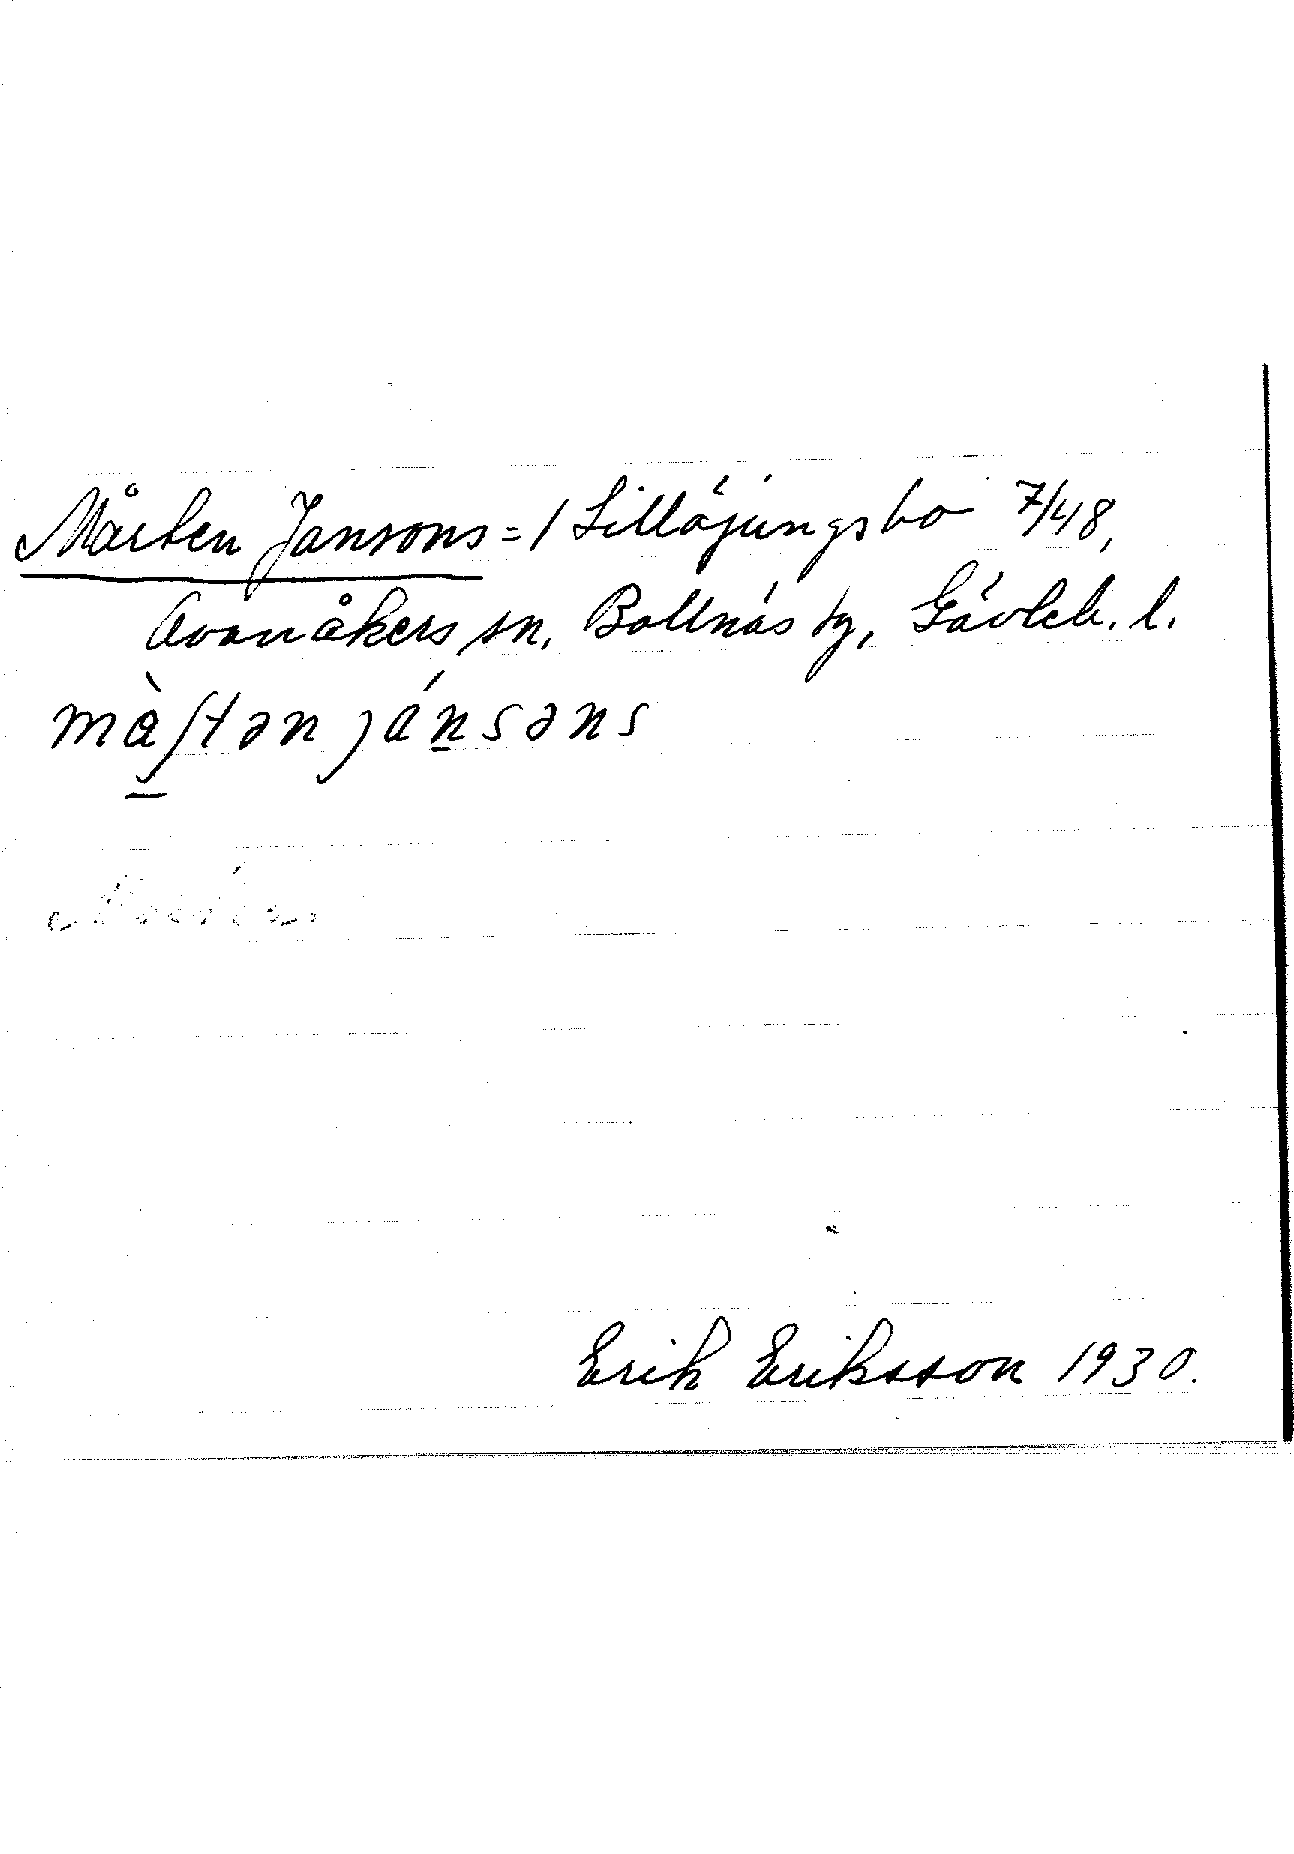 Mårten Jansons = / Lillöjungsbo 7/48,
Ovanåkers sn, Bollnäs tg, Gävleb. l.
màʃtən jánsəns
Erik Eriksson 1930.